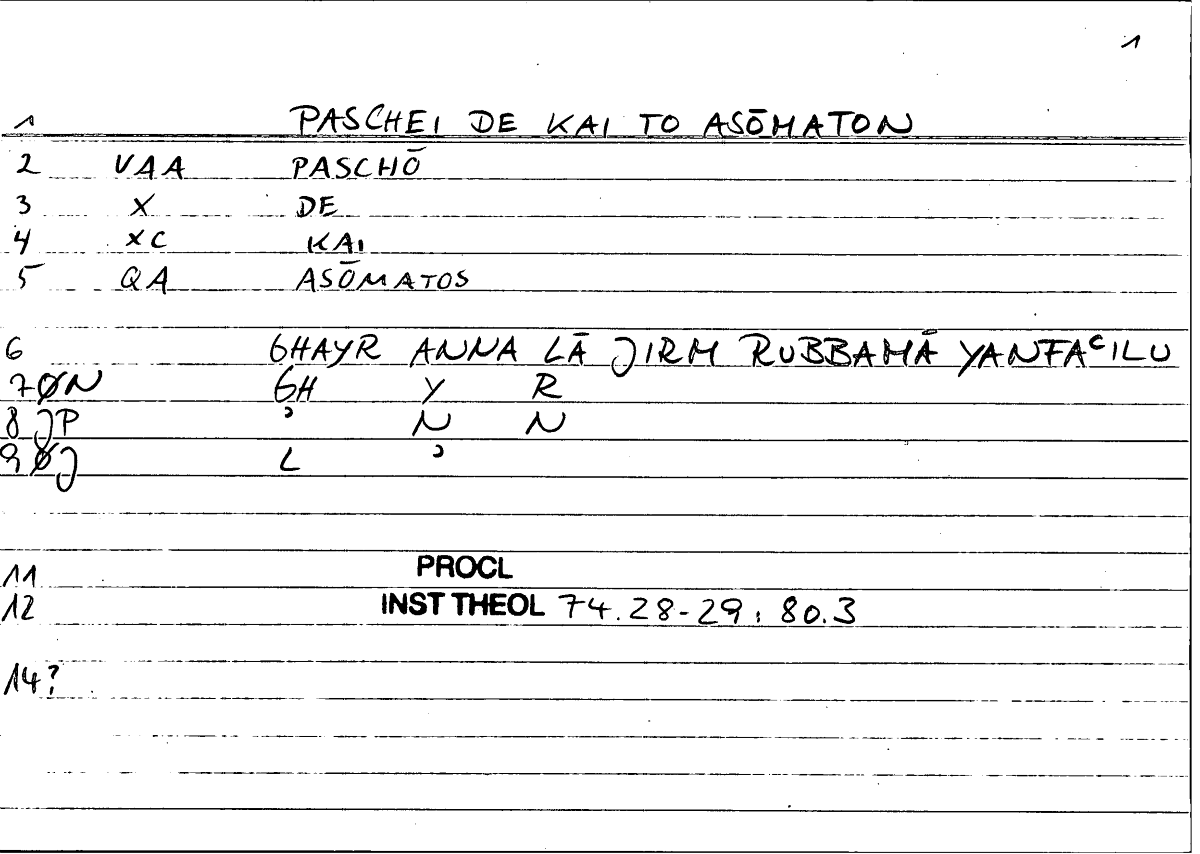 1
1 PASCHEI DE KAI TO ASŌMATON
2 VAA PASCHŌ
3 X DE
4 XC KAI
5 QA ASŌMATOS
6 GHAYR ANNA LĀ JIRM RUBBAMĀ YANFAʿILU
7 ØN GH Y R
8 JP ʾ N N
9 ØJ L ʾ
11 PROCL
12 INST THEOL 74.28-29 : 80.3
14?